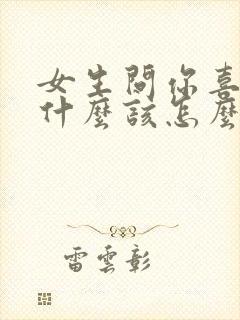 女生問你喜
什麼該怎麼
雷雲彰